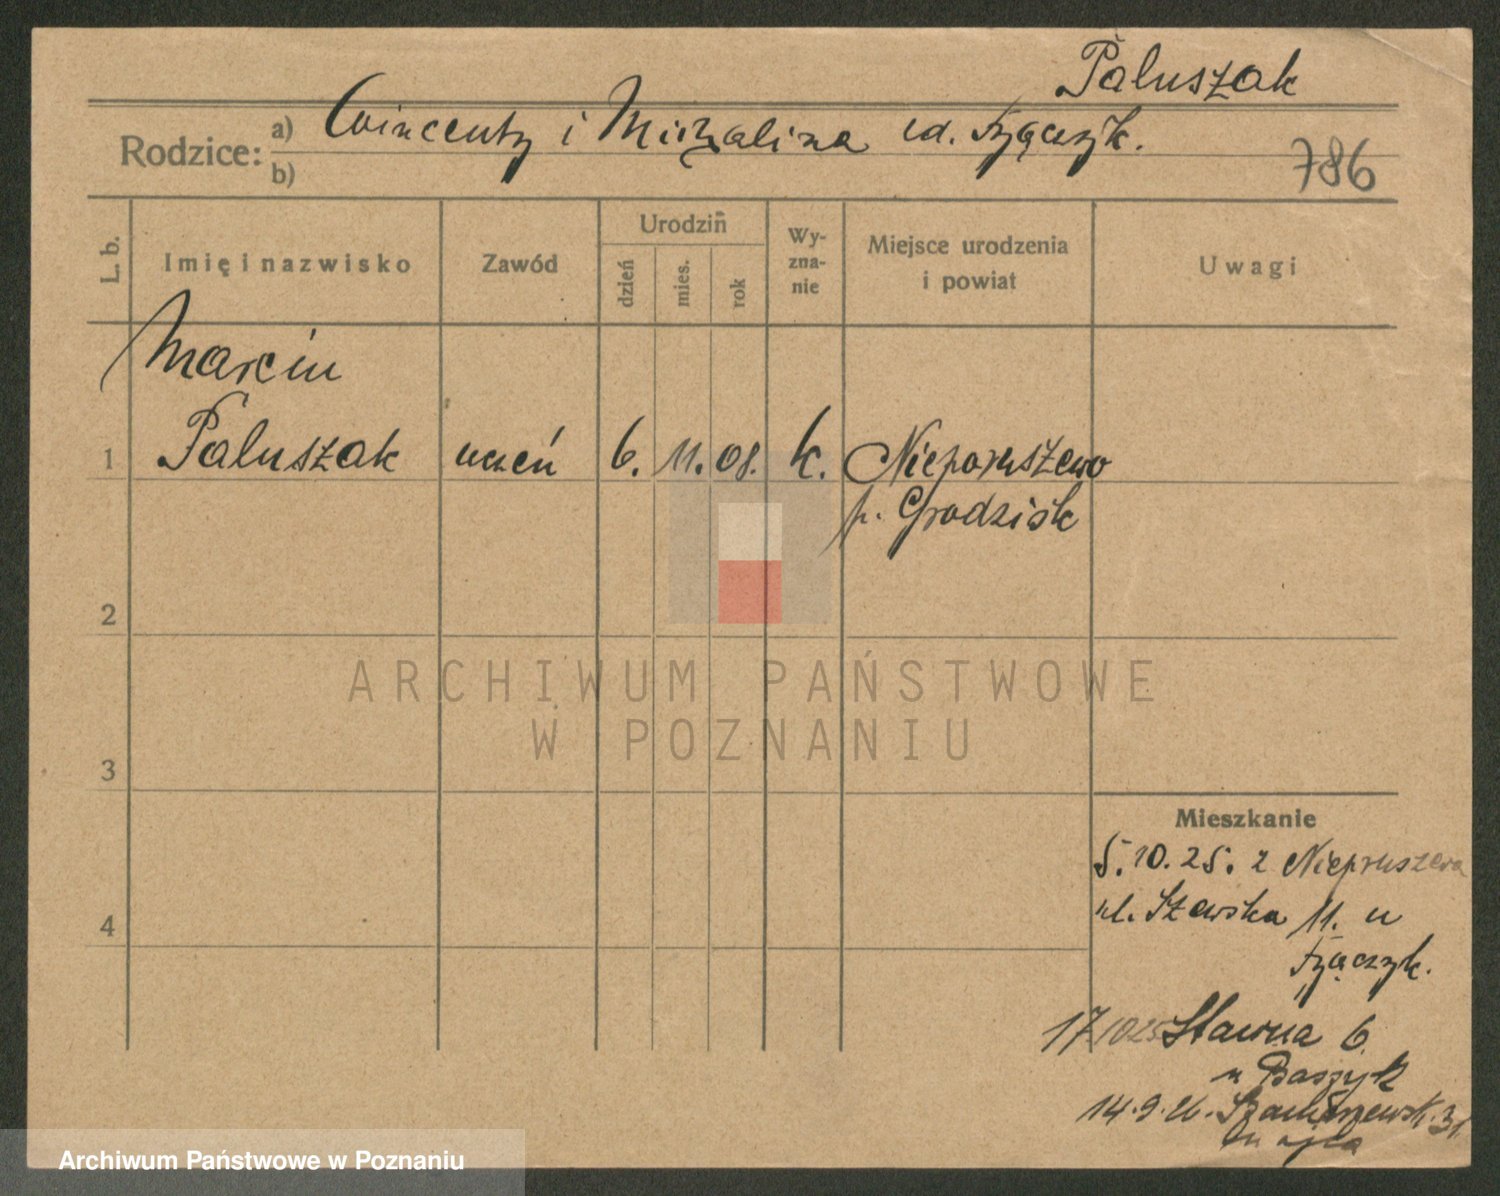 Paluszak
Rodzice: a) Wincenty i Michalina
b)
786
L. b. Imię i nazwisko Zawód Urodzin dzień mies. rok Wy-zna-nie Miejsce urodzenia i powiat Uwagi
Marcin
1 Paluszak uczeń 6. 11. 08. k. Niepruszewo
p. Grodzisk
2
3
4
Mieszkanie
5.10.25. z Niepruszewa
ul. Szewska 11. u
17/10 25 Stawna 6
u
14.9.26.
ARCHIWUM PAŃSTWOWE
W POZNANIU
Archiwum Państwowe w Poznaniu